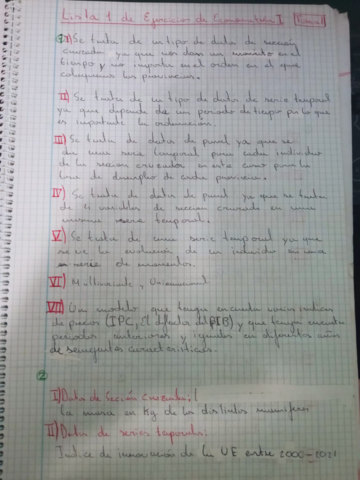 Lista 1 de Ejercicios de Econometría I
① I) Se trata de un tipo de datos de sección
cruzada ya que nos dan un momento en el
tiempo y no importa el orden en el que
coloquemos las provincias.
II) Se trata de un tipo de datos de serie temporal
ya que depende de un periodo de tiempo por lo que
es importante la ordenación.
III) Se trata de datos de panel ya que se
da una serie temporal para cada individuo
de la sección cruzada en este caso para la
tasa de desempleo de cada provincia
IV) Se trata de datos de panel ya que se trata
de variables de sección cruzada en una
misma serie temporal.
V) Se trata de una serie temporal ya que
se ve la evolución de un individuo en una
serie de momentos.
VI) Multivariante, Unidimensional
VII) Un modelo que tenga en cuenta varios índices
de precios (IPC, deflactor del PIB) y que tenga en cuenta
periodos anteriores y iguales en diferentes años
de semejantes características
②
I) Datos de Sección Cruzada:
La masa en Kg de los distintos mamíferos
II) Datos de series temporales:
Índice de innovación de la UE entre 2000-2021